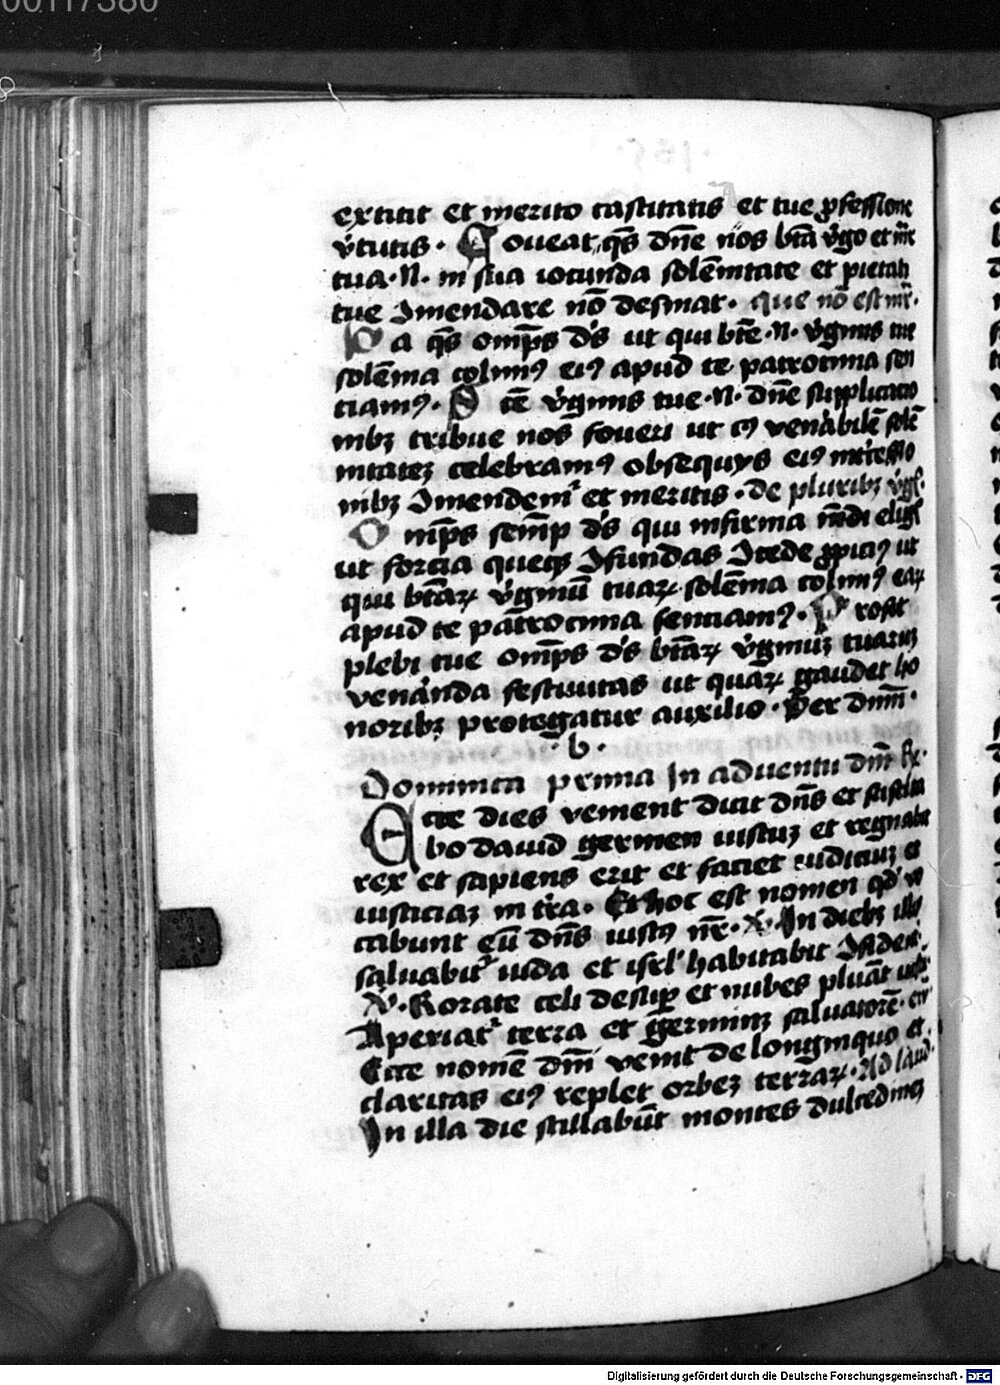 00117380
extitit et merito castitatis et tue ꝓfessione
v̓tutis · Foveat q̄s dn̄e nos btā v̓go et mr̄
tua · N · in sua iocunda solēnitate et pietati
tue ɔmendare nō desinat · que nō est mr̄ ·
Da q̄s omp̄s ds̄ ut qui btē · N · v̓ginis tue
solēnia colimꝰ eiꝰ apud te patrocinia sen
ciamꝰ · btē v̓ginis tue · N · dn̄e supplicacio
nibꝫ tribue nos foveri ut cꝰ venābilē solē
nitateꝫ celebramꝰ obsequijs eiꝰ int̓cessio
nibꝫ ɔmendemr̄ et meritis · de pluribꝫ v̓g̓ ·
Omp̄s semp̄ ds̄ qui infirma mūdi eligis
ut forcia queqꝫ ɔfundas ɔcede ꝓpiciꝰ ut
qui btāꝝ v̓ginū tuaꝝ solēnia colimꝰ eaꝝ
apud te pātrocinia senciamꝰ · Prosit
plebi tue omp̄s ds̄ btāꝝ v̓ginuꝫ tuaruꝫ
venānda festivitas ut quāꝝ gaudet ho
noribꝫ protegatur auxilio · Per dnm̄ ·
· b ·
Dominica prima In adventu dnī
Ecce dies venient dicit dn̄s et suscita
bo david germen iustuꝫ et regnabit
rex et sapiens erit et faciet iudiciuꝫ et
iusticiaꝫ in tr̄a · Et hoc est nomen qd̓ vo
cabunt eū dn̄s iustꝰ nr̄ · V̓ · In diebꝫ illis
salvabit᷑ iuda et isrl̓ habitabit ɔfident̓ ·
V̓ · Rorate celi desup̄ et nubes pluāt iustū
Aperiat᷑ terra et germinꝫ salvatorē ·
Ecce nomē dnī venit de longinquo et
claritas eiꝰ replet orbeꝫ terraꝝ · Ad laud̓ ·
In illa die stillabūt montes dulcedineꝫ
Digitalisierung gefördert durch die Deutsche Forschungsgemeinschaft - DFG